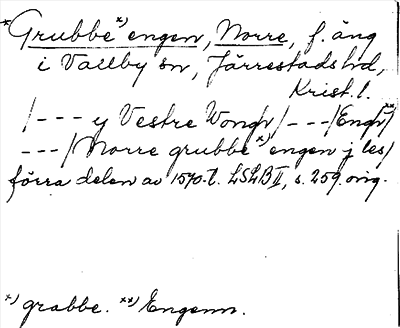 *Grubbe*)engen, Norre, f. äng
i Vallby sn, Järrestads hd,
Krist. l.
/--- y Vestre Wongr/---/Engr**)
---/Norre grubbe*)engen j tes/
förra delen av 1570-t. LSLB II, s. 259. orig.
*) grabbe. **) Engenn.